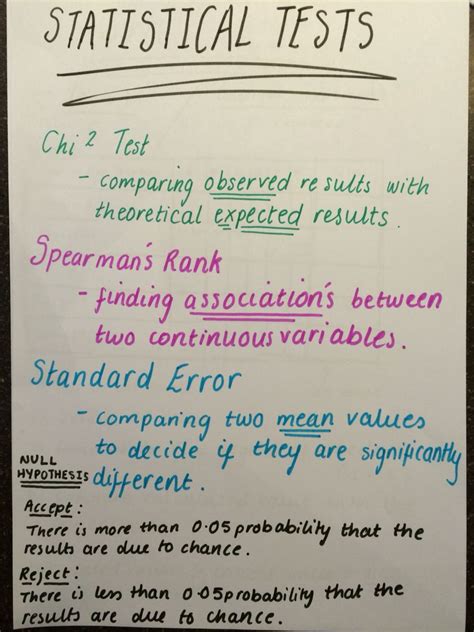 STATISTICAL TESTS
Chi² Test
- comparing observed results with
theoretical expected results.
Spearman's Rank
- finding association's between
two continuous variables.
Standard Error
- comparing two mean values
to decide if they are significantly
different.
NULL
HYPOTHESIS
Accept:
There is more than 0.05 probability that the
results are due to chance.
Reject:
There is less than 0.05 probability that the
results are due to chance.